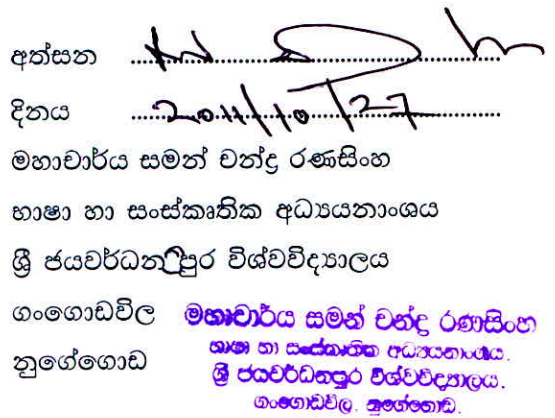 අත්සන ....................................................
දිනය 2011/10/27
මහාචාර්ය සමන් චන්ද්‍ර රණසිංහ
භාෂා හා සංස්කෘතික අධ්‍යයනාංශය
ශ්‍රී ජයවර්ධනපුර විශ්වවිද්‍යාලය
ගංගොඩවිල
නුගේගොඩ
මහාචාර්ය සමන් චන්ද්‍ර රණසිංහ
භාෂා හා සංස්කෘතික අධ්‍යයනාංශය.
ශ්‍රී ජයවර්ධනපුර විශ්වවිද්‍යාලය.
ගංගොඩවිල. නුගේගොඩ.